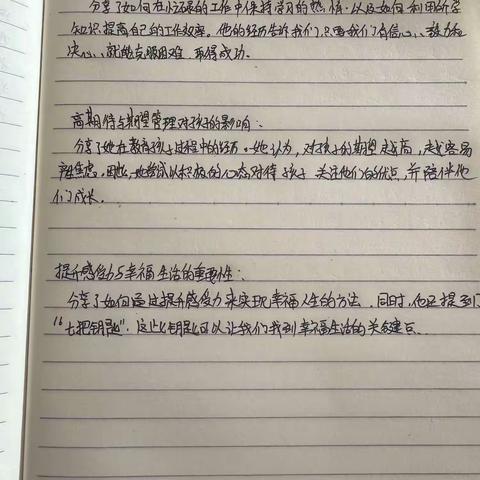 分享了如何在小忙碌的工作中保持学习的热情.以及如何利用所学
知识提高自己的工作效率。他的经历告诉我们,只要我们有信心、毅力和
决心、就能克服困难.取得成功.
高期待与期望管理对孩子的影响:
分享了她在教育孩子过程中的经历。她认为,对孩子的期望越高,越容易
产生焦虑。因此,她尝试以积极的心态对待孩子 关注他们的优点,并陪伴他
们成长.
提升感受力与幸福生活的重要性:
分享了如何通过提升感受力来实现幸福人生的方法.同时,他还提到了
"七把钥匙".这些钥匙可以让我们找到幸福生活的关键点.